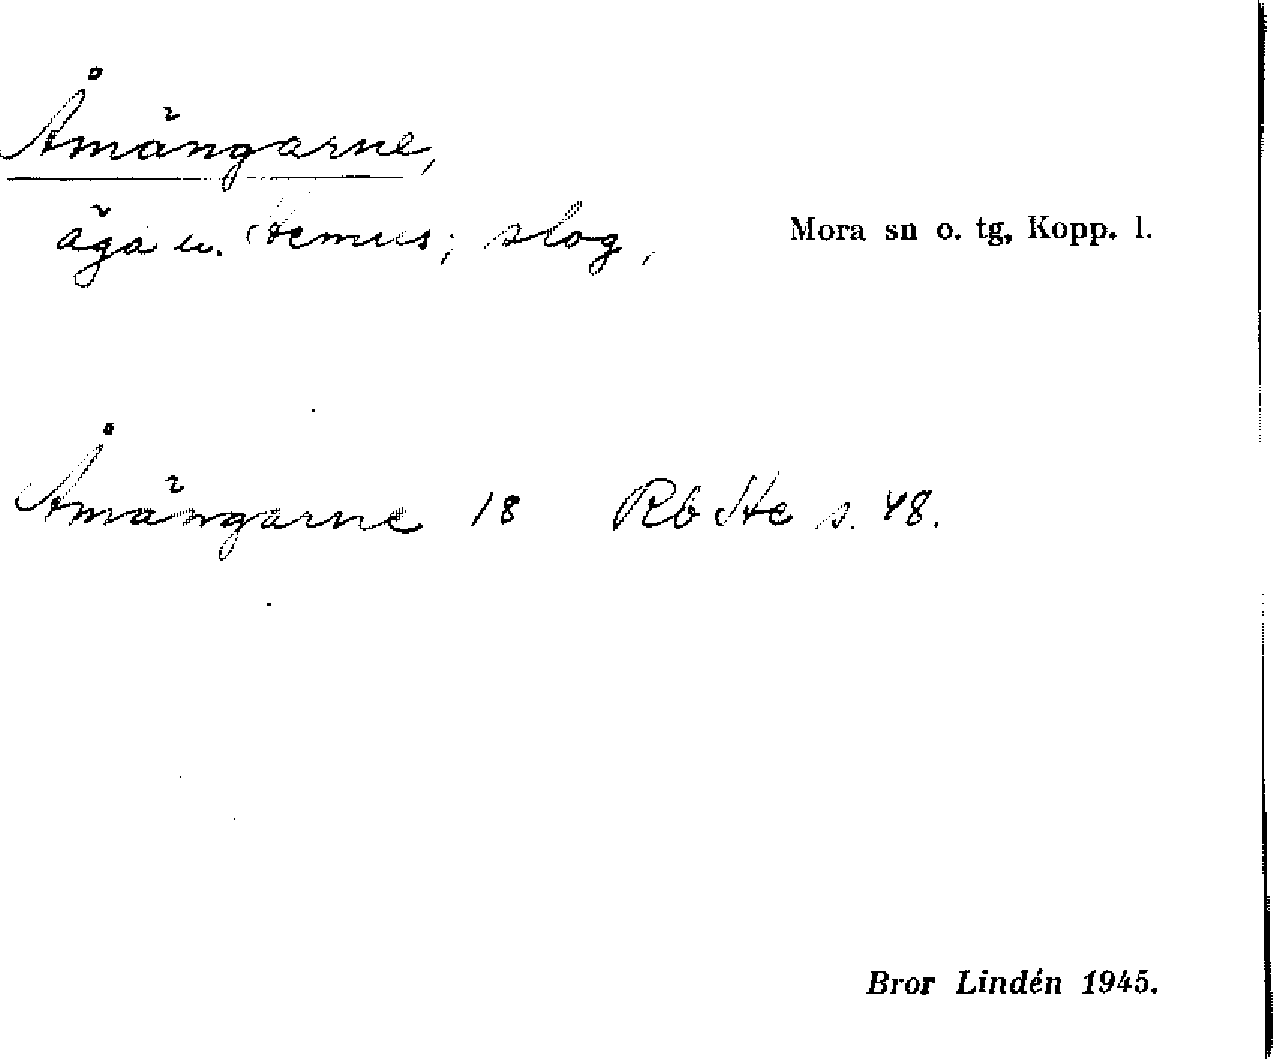 Åmängarne,
äga u. Hemus; slog,
Mora sn o. tg, Kopp. l.
Åmängarne 18 Rb He s. 48.
Bror Lindén 1945.